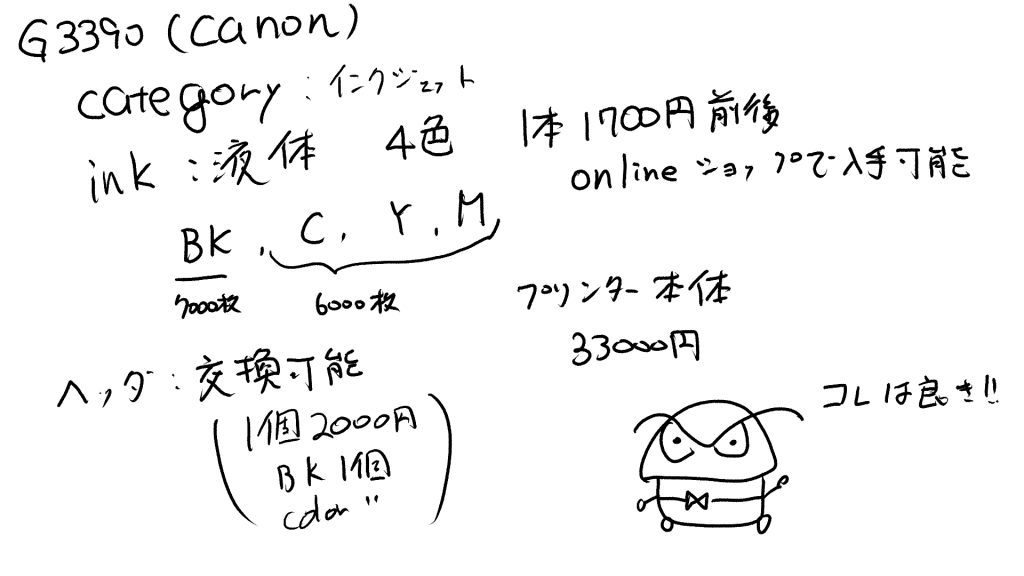 G3390 (Canon)
category : インクジェット
ink : 液体 4色
BK , C , Y , M
7000枚 6000枚
ヘッダ : 交換可能
(1個 2000円
BK 1個
color 〃)
1本 1700円前後
onlineショップで入手可能
プリンター本体
33000円
コレは良き!!